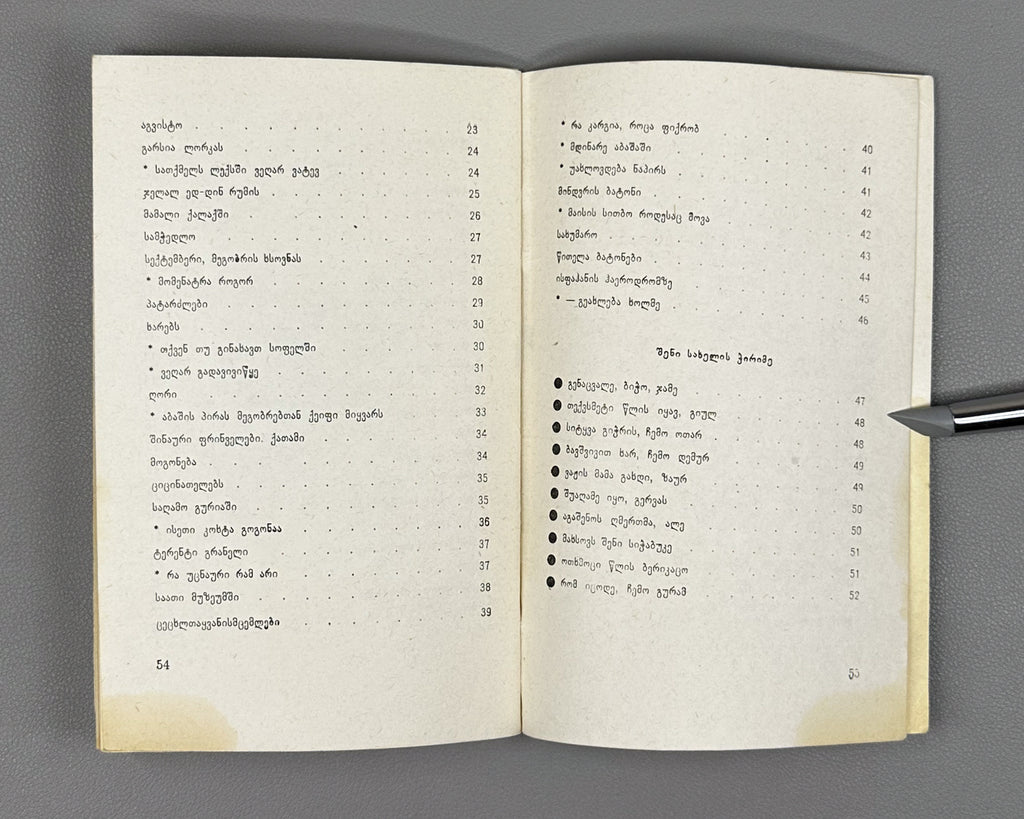 აგვისტო . . . . . . . . . . 23
გარსია ლორკას . . . . . . . . . 24
* სათქმელს ლექსში ვეღარ ვატევ . . . . . 24
ჯელალ ედ-დინ რუმის . . . . . . . 25
მამალი ქალაქში . . . . . . . . 26
სამჭედლო . . . . . . . . . 27
სექტემბერი, მეგობრის ხსოვნას . . . . . . 27
* მომენატრა როგორ . . . . . . . 28
პატარძლები . . . . . . . . . 29
ხარებს . . . . . . . . . . 30
* თქვენ თუ გინახავთ სოფელში . . . . . 30
* ვეღარ გადავივიწყე . . . . . . . 31
ღორი . . . . . . . . . . 32
* აბაშის პირას მეგობრებთან ქეიფი მიყვარს . . . 33
შინაური ფრინველები. ქათამი . . . . . . 34
მოგონება . . . . . . . . . 34
ციცინათელებს . . . . . . . . 35
საღამო გურიაში . . . . . . . . 35
* ისეთი კოხტა გოგონაა . . . . . . 36
ტერენტი გრანელი . . . . . . . 37
* რა უცნაური რამ არი . . . . . . 37
საათი მუზეუმში . . . . . . . . 38
ცეცხლთაყვანისმცემლები . . . . . . 39
54
* რა კარგია, როცა ფიქრობ . . . 40
* მდინარე აბაშაში . . . . . . . 41
* უახლოვდება ნაპირს . . . . . . 41
მინდვრის ბატონი . . . . . . . 42
* მაისის სითბო როდესაც მოვა . . . . . 42
სახუმარო . . . . . . . . 43
წითელა ბატონები . . . . . . . 44
ისფაჰანის ჰაეროდრომზე . . . . . . 45
* — გეახლება ხოლმე . . . . . . 46
შენი სახელის ჭირიმე
● გენაცვალე, ბიჭო, ჯამე . . . . . 47
● თექვსმეტი წლის იყავ, გიულ . . . . 48
● სიტყვა გიჭრის, ჩემო ოთარ . . . . 48
● ბავშვივით ხარ, ჩემო დემურ . . . . 49
● ვაჟის მამა გახდი, ზაურ . . . . . 49
● შუაღამე იყო, გერვას . . . . . 50
● აგაშენოს ღმერთმა, ალე . . . . . 50
● მახსოვს შენი სიჭაბუკე . . . . . 51
● ოთხმოცი წლის ბერიკაცო . . . . . 51
● რომ იცოდე, ჩემო გურამ . . . . . 52
55